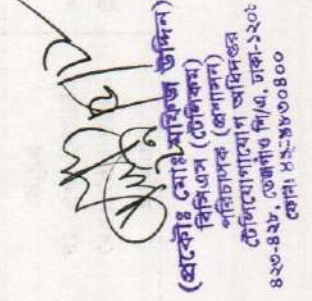 (প্রকৌঃ মোঃ মফিজ উদ্দিন)
বিসিএস (টেলিকম)
পরিচালক (প্রশাসন)
টেলিযোগাযোগ অধিদপ্তর
৪২৩-৪২৮, তেজগাঁও শি/এ, ঢাকা-১২০৮
ফোন: